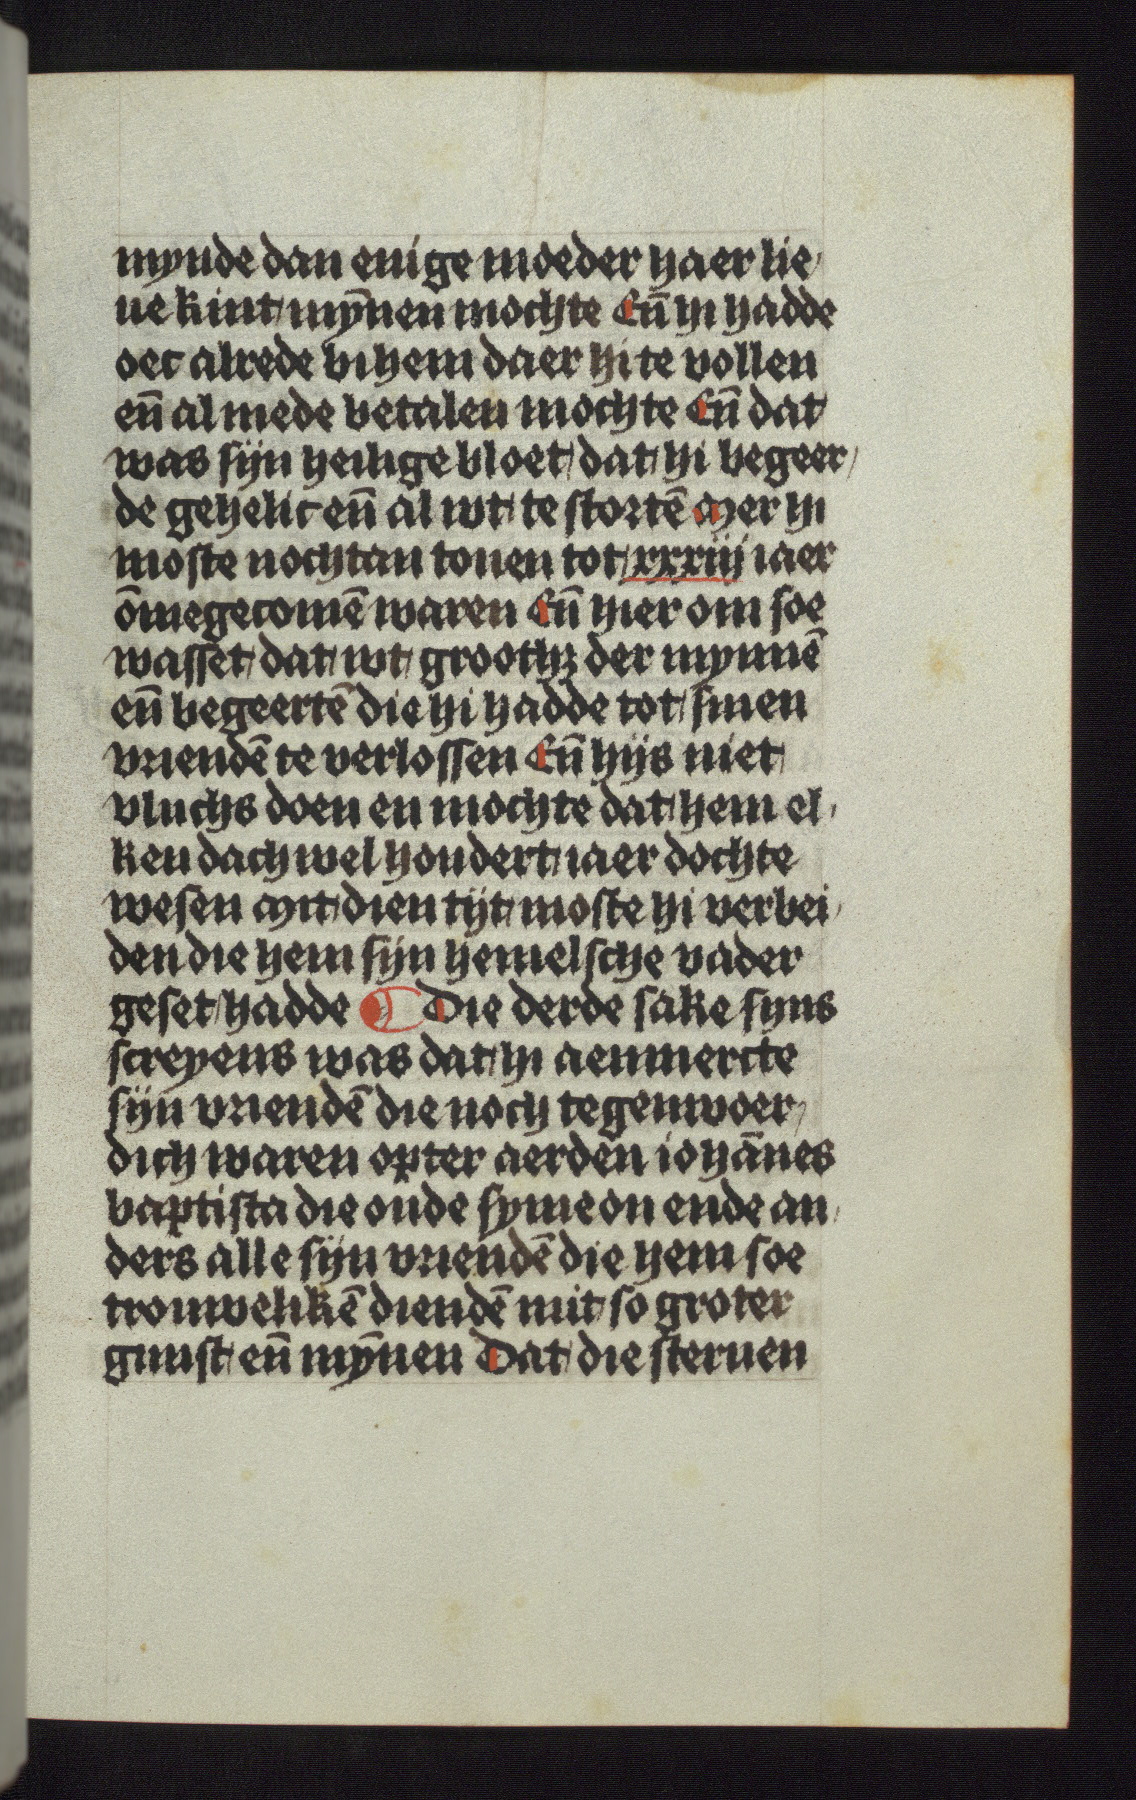 mynde dan enige moeder haer lie
ue kint mȳnen mochte En̄ hi hadde
oec alrede bi hem daer hi te vollen
en̄ al mede betalen mochte En̄ dat
was sijn heilige bloet dat hi begeer
de gehelic en̄ al wt te stortē Mer hi
moste nochtan touen tot xxxiij iaer
ōmegecomē waren En̄ hier om soe
wasset dat wt groothz der mynnē
en̄ begeertē die hi hadde tot sinen
vriendē te verlossen En̄ hijs niet
vluchs doen en mochte dat hem el
ken dach wel hondert iaer dochte
wesen Mit dien tijt moste hi verbei
den die hem sijn hemelsche vader
geset hadde Die derde sake sijns
screyens was dat hi aenmercte
sijn vriendē die noch tegenwoer
dich waren opter aerden iohānes
baptista die oude symeon ende an
ders alle sijn vriendē die hem soe
trouwelikē diendē mit so groter
gunst en̄ mȳnen Dat die steruen